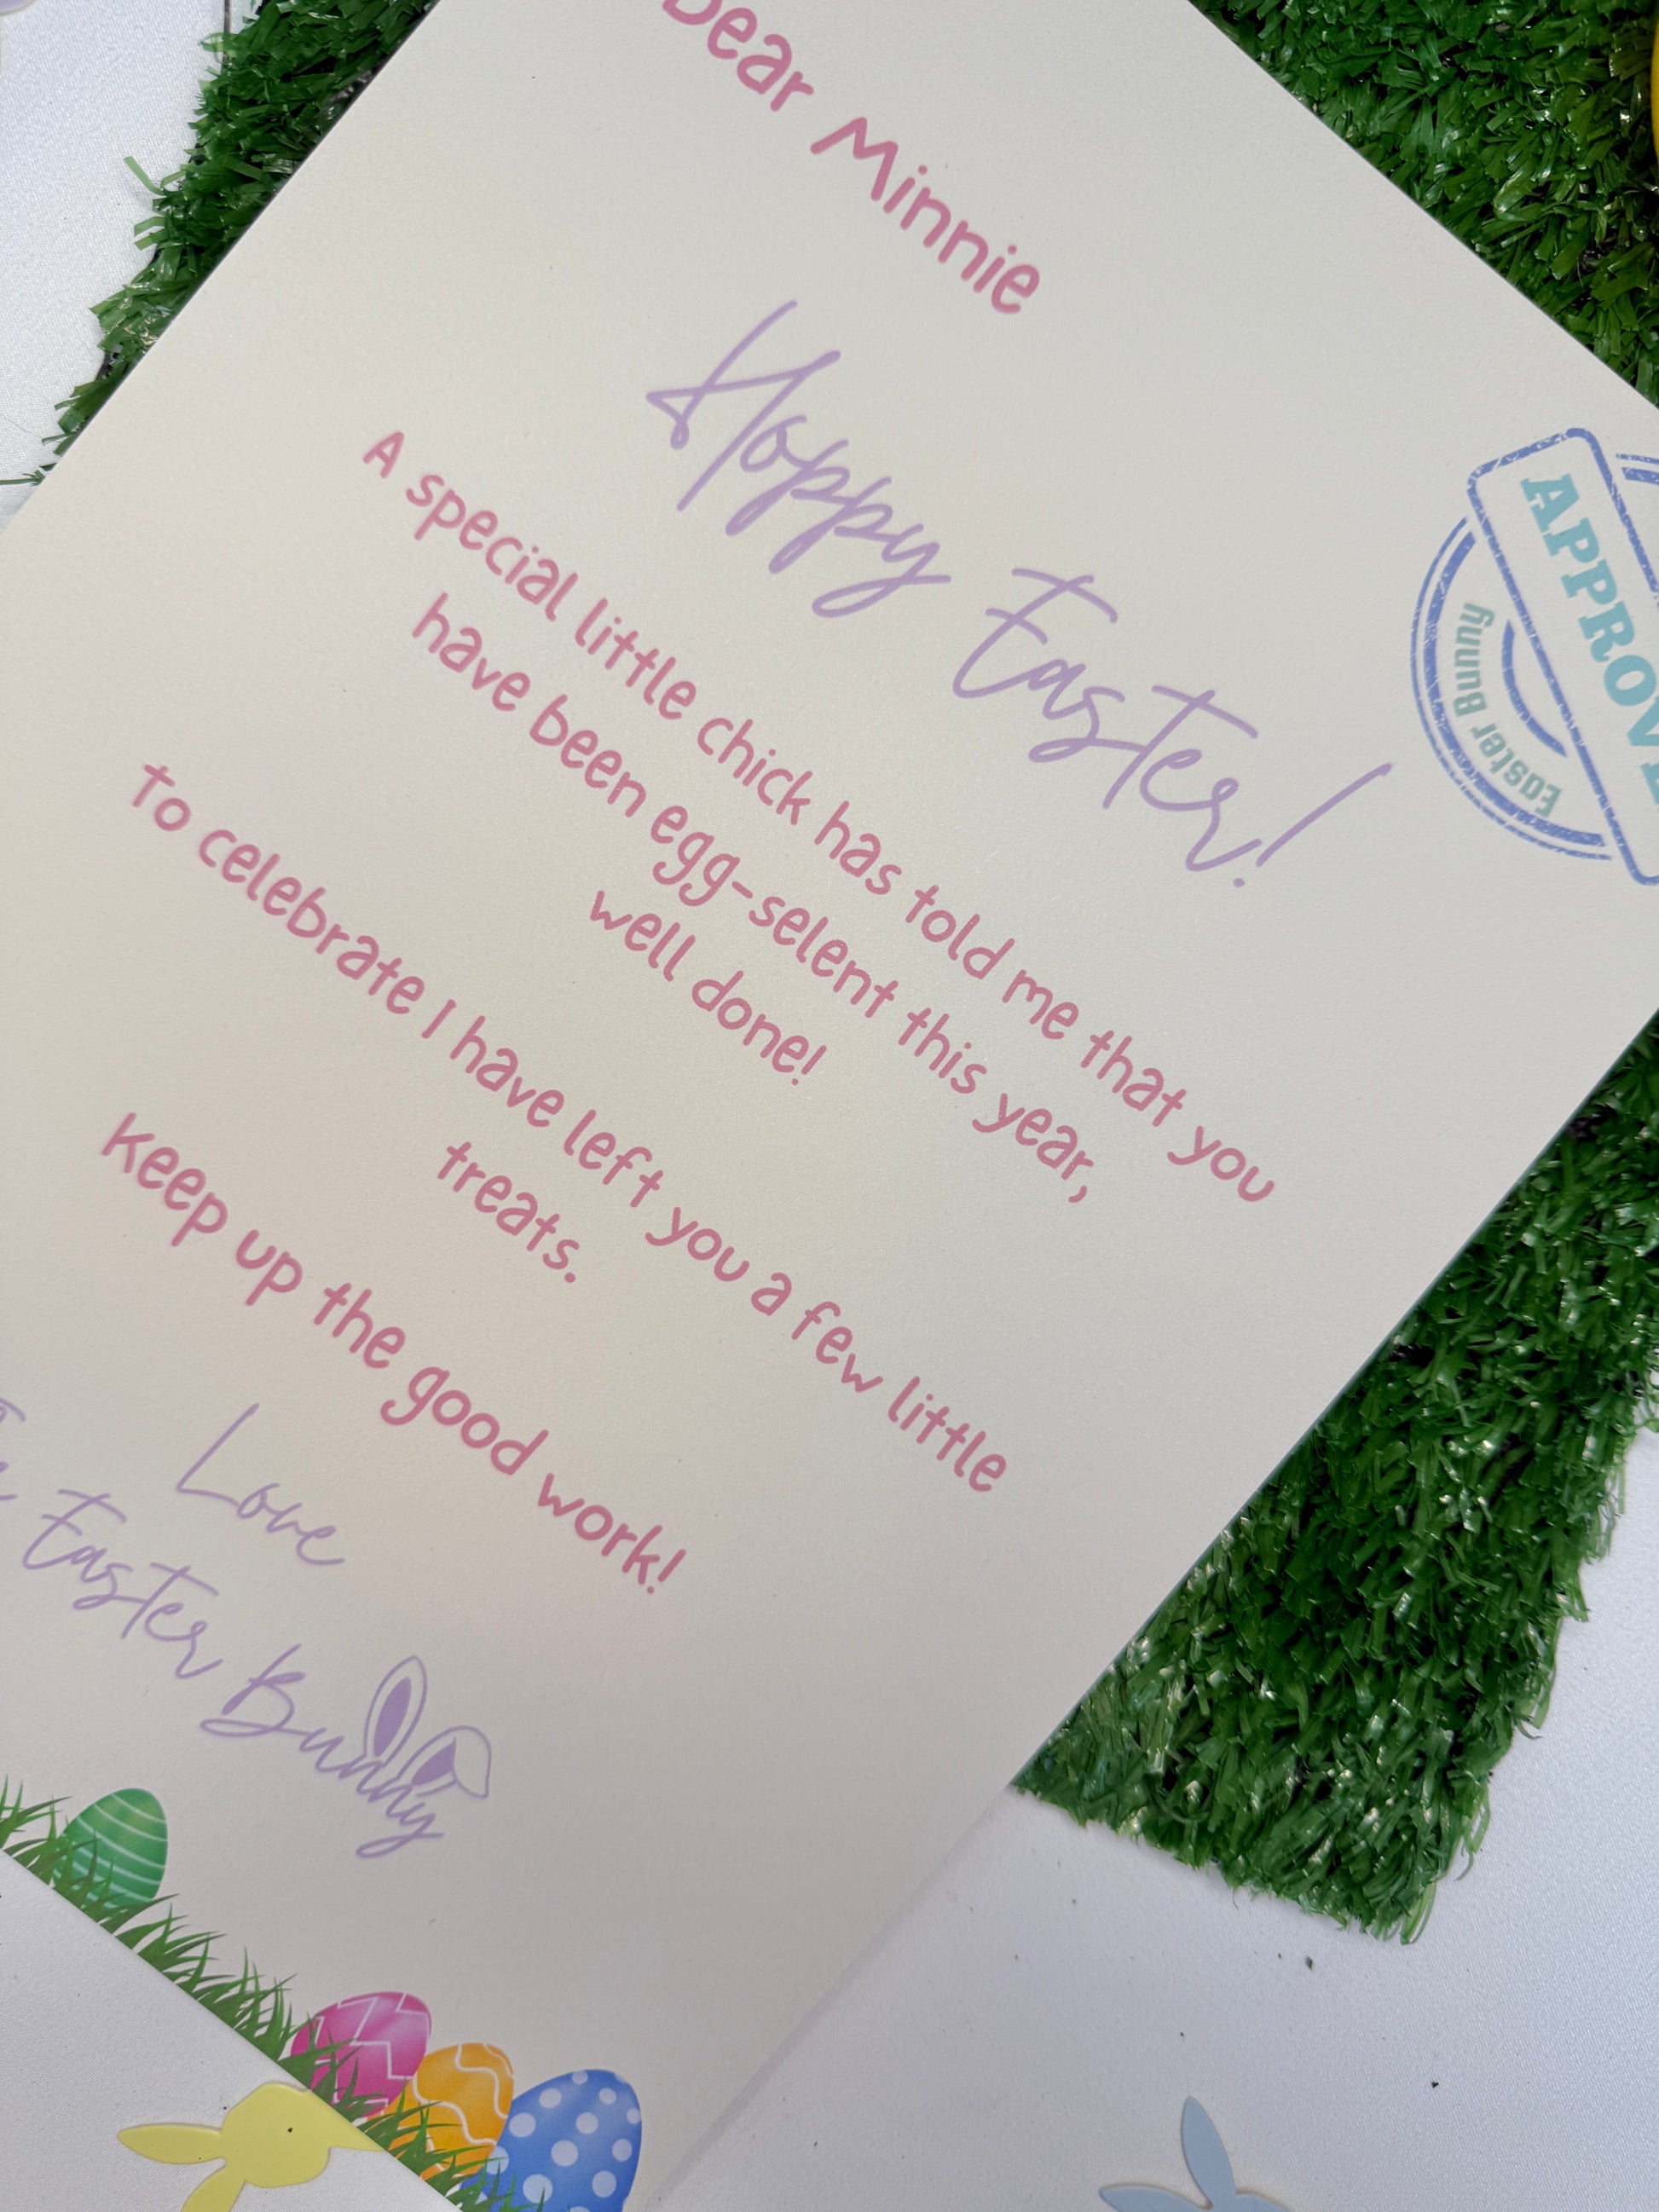 Dear Minnie
Hoppy Easter!
APPROVE
Easter Bunny
A special little chick has told me that you
have been egg-selent this year,
well done!
To celebrate I have left you a few little
treats.
Keep up the good work!
Love
Easter Bunny